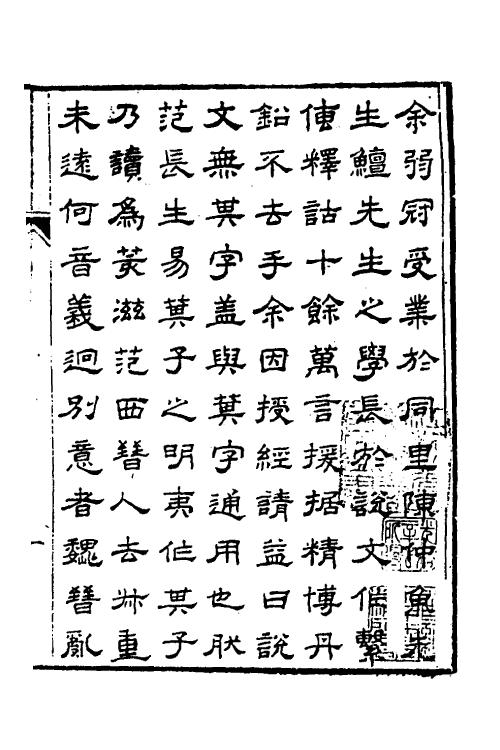 余弱冠受業於同里陳仲魚先
生鱣先生之學長於說文作繫
傳釋詁十餘萬言援据精博丹
鉛不去手余因授經請益曰說
文無其字盖與萁字通用也肰
范長生易萁子之明夷作其子
乃讀為荄滋范西晉人去尗重
未遠何音義迥別意者魏晉亂
一